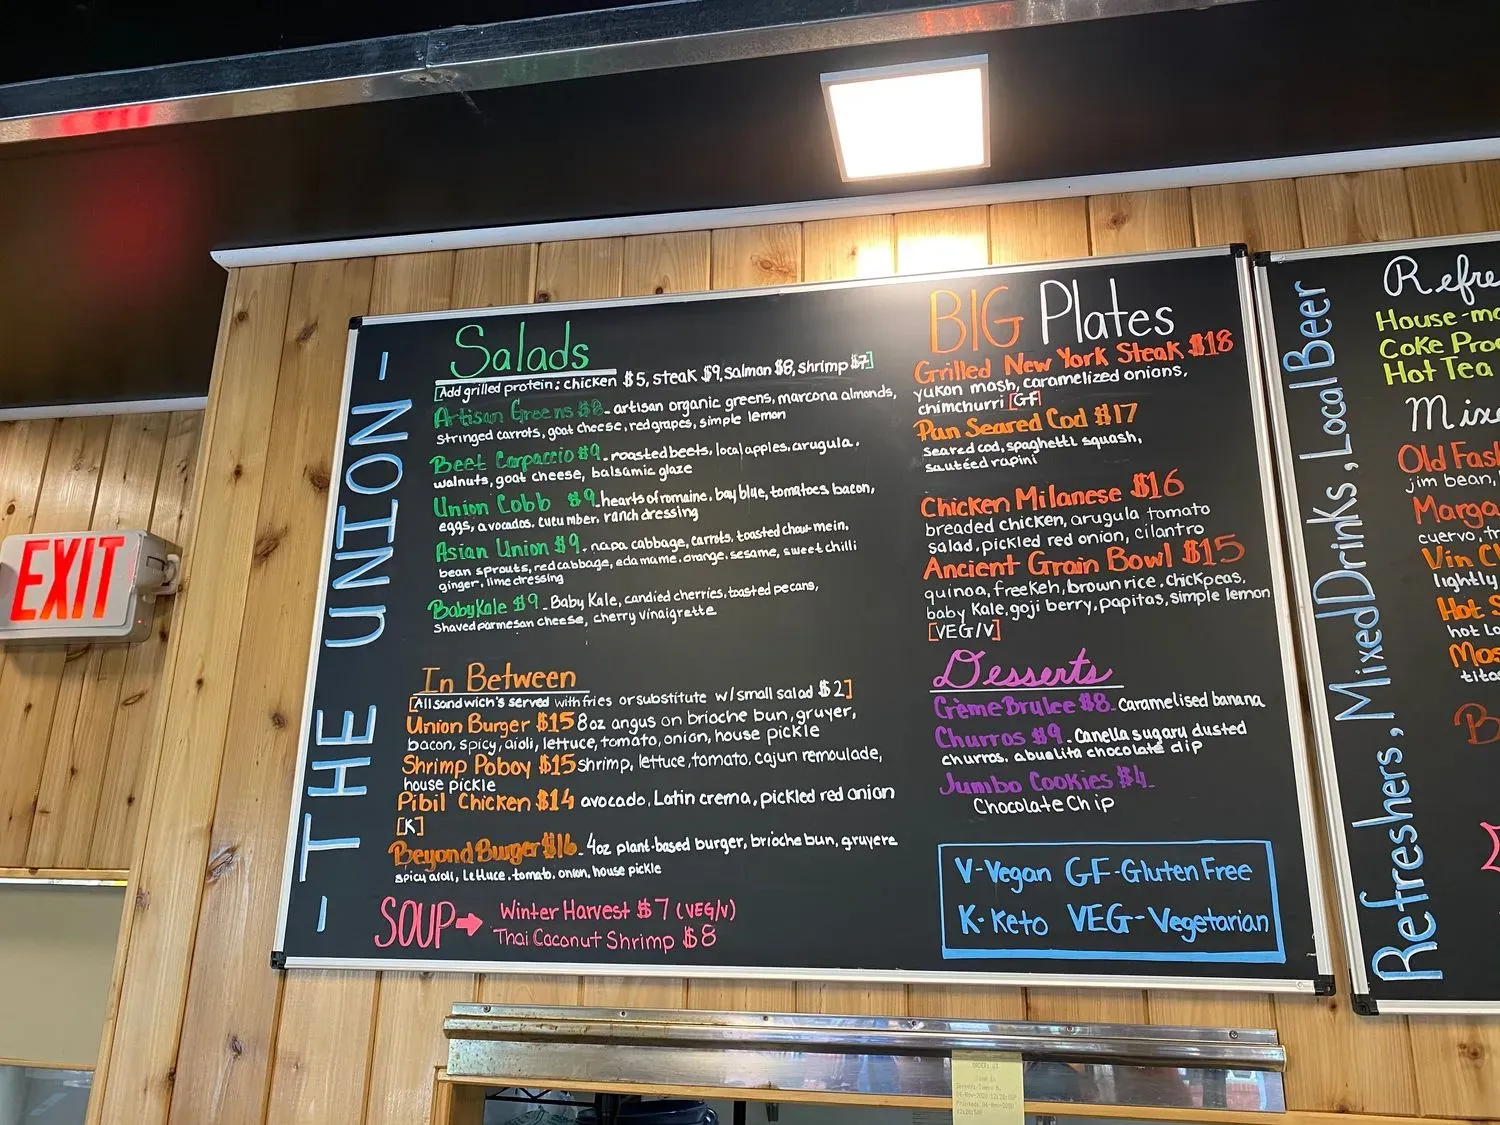 EXIT
- THE UNION -
Salads
[Add grilled protein: chicken $5, steak $9, salmon $8, shrimp $7]
Artisan Greens $8 - artisan organic greens, marcona almonds,
stringed carrots, goat cheese, red grapes, simple lemon
Beet Carpaccio $9 - roasted beets, local apples, arugula,
walnuts, goat cheese, balsamic glaze
Union Cobb $9 - hearts of romaine, bay blue, tomatoes, bacon,
eggs, avocados, cucumber, ranch dressing
Asian Union $9 - napa cabbage, carrots, toasted chow-mein,
bean sprouts, red cabbage, edamame, orange, sesame, sweet chilli
ginger, lime dressing
Baby Kale $9 - Baby Kale, candied cherries, toasted pecans,
shaved parmesan cheese, cherry vinaigrette
In Between
[All sandwich's served with fries or substitute w/ small salad $2]
Union Burger $15 8oz angus on brioche bun, gruyer,
bacon, spicy, aioli, lettuce, tomato, onion, house pickle
Shrimp Poboy $15 shrimp, lettuce, tomato, cajun remoulade,
house pickle
Pibil Chicken $14 avocado, Latin crema, pickled red onion
[K]
Beyond Burger $16 - 4oz plant-based burger, brioche bun, gruyere
spicy aioli, lettuce, tomato, onion, house pickle
SOUP → Winter Harvest $7 (VEG/V)
Thai Coconut Shrimp $8
BIG Plates
Grilled New York Steak $18
yukon mash, caramelized onions,
chimchurri [GF]
Pan Seared Cod $17
seared cod, spaghetti squash,
sautéed rapini
Chicken Milanese $16
breaded chicken, arugula tomato
salad, pickled red onion, cilantro
Ancient Grain Bowl $15
quinoa, freekeh, brown rice, chickpeas,
baby kale, goji berry, papitas, simple lemon
[VEG/V]
Desserts
Crème Brulee $8 - Caramelised banana
Churros $9 - Canella sugary dusted
churros, abuelita chocolate dip
Jumbo Cookies $4 -
Chocolate Chip
V-Vegan GF-Gluten Free
K-Keto VEG-Vegetarian
Refreshers, Mixed Drinks, Local Beer
Refre
House-ma
Coke Pro
Hot Tea
Mixe
Old Fas
jim bean,
Marga
cuervo, tr
Vin C
lightly
Hot S
hot Lo
Mos
tito
B